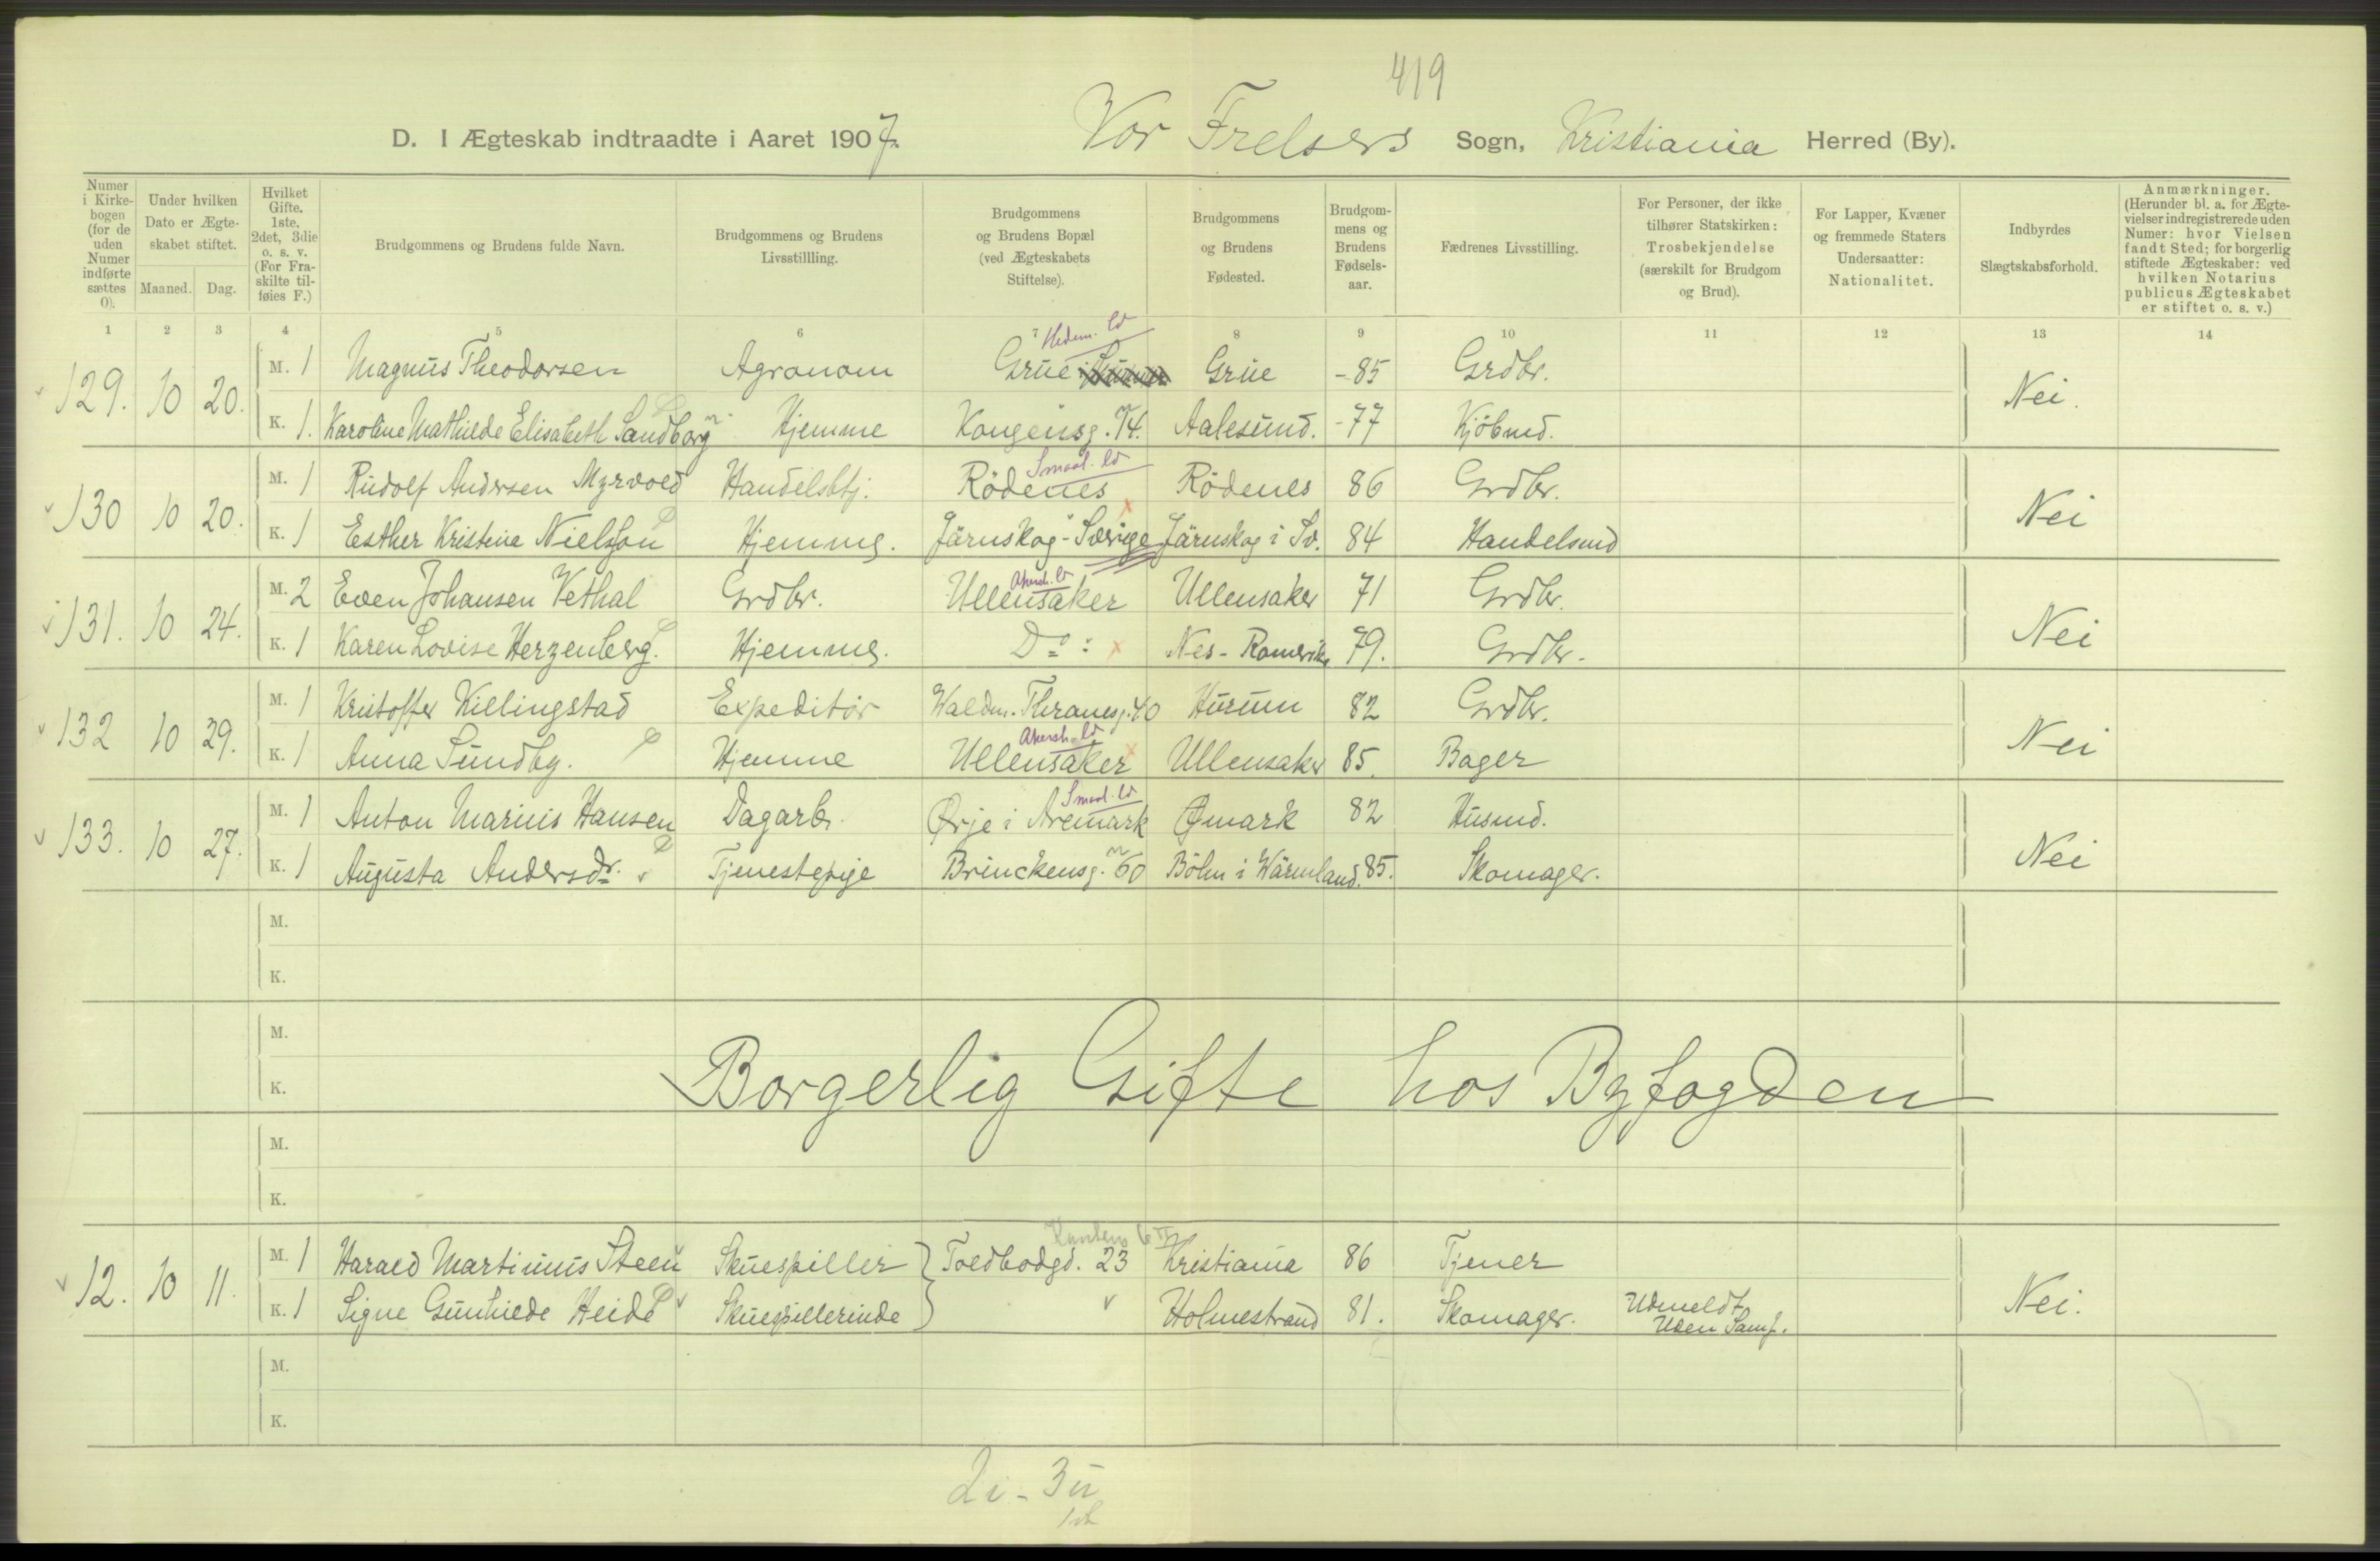 419
D. I Ægteskab indtraadte i Aaret 1907. Vor Frelsers Sogn, Kristiania Herred (By).
Numer i Kirkebogen (for de uden Numer indførte sættes 0).
Under hvilken Dato er Ægteskabet stiftet.
Maaned. Dag.
Hvilket Gifte. 1ste, 2det, 3die o. s. v. (For Fraskilte tilføies F.)
Brudgommens og Brudens fulde Navn.
Brudgommens og Brudens Livsstillling.
Brudgommens og Brudens Bopæl (ved Ægteskabets Stiftelse).
Brudgommens og Brudens Fødested.
Brudgommens og Brudens Fødselsaar.
Fædrenes Livsstilling.
For Personer, der ikke tilhører Statskirken: Trosbekjendelse (særskilt for Brudgom og Brud).
For Lapper, Kvæner og fremmede Staters Undersaatter: Nationalitet.
Indbyrdes Slægtskabsforhold.
Anmærkninger. (Herunder bl. a. for Ægtevielser indregistrerede uden Numer: hvor Vielsen fandt Sted; for borgerlig stiftede Ægteskaber: ved hvilken Notarius publicus Ægteskabet er stiftet o. s. v.)
1 2 3 4 5 6 7 8 9 10 11 12 13 14
Hedem. ld
129. 10 20. M. 1 Magnus Theodorsen Agronom Grue Grue -85 Grdbr. Nei.
K. 1. Karoline Mathilde Elisabeth Sandborg Hjemme Kongensg. 14. Aalesund. -77 Kjöbmd.
Smaal. ld
130 10 20. M. 1 Rudolf Andersen Myrvold Handelsbtj. Rödenes Rödenes 86 Grdbr. Nei
K. 1 Esther Kristine Nielson Hjemme. Järnskog - Sverige Järnskog i Sv. 84 Handelsmd
Akersh. ld
131. 10 24. M. 2 Even Johansen Vethal Grdbr. Ullensaker Ullensaker 71 Grdbr. Nei
K. 1 Karen Lovise Herzenberg. Hjemme. Do: Nes - Romerike 79. Grdbr.
132 10 29. M. 1 Kristoffer Killingstad Expeditör Waldm. Thranesg. 40 Hurum 82 Grdbr. Nei
Akersh. ld
K. 1 Anna Sundby. Hjemme Ullensaker Ullensaker 85. Bager
Smaal. ld
133. 10 27. M. 1 Anton Marius Hansen Dagarb. Ørje i Aremark Ømark 82 Husmd. Nei
K. 1 Augusta Andersdr. Tjenestepige Brinckensg. 60 Bölm i Wärmland. 85. Skomager.
M.
K.
M.
K.
Borgerlig Gifte hos Byfogden
M.
K.
12. 10 11. M. 1 Harald Martinius Steen Skuespiller Toldbodgd. 23 Kristiania 86 Tjener Nei.
K. 1 Signe Gunhilde Heide Skuespillerinde Holmestrand 81. Skomager. Udmeldt
Uden Samf.
M.
K.
2i - 3u